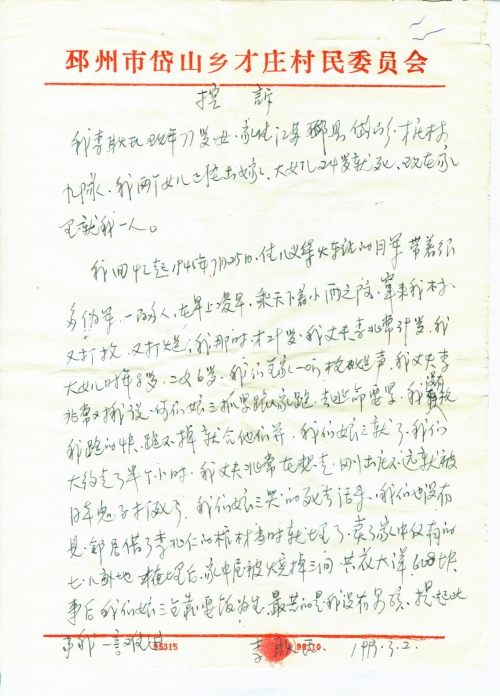 邳州市岱山乡才庄村民委员会
控 訴
我李耿氏现年77岁女.家住江苏邳县岱山乡.才庄村
九队.我两个女儿已经出嫁,大女儿24岁就死.现在家
里就我一人。
我回忆起1945年7月25日.住八义集火车站的日军带着很
多伪军.一百多人,在早上凌晨.乘天下着小雨之际.窜来我村.
又打枪.又打炮,我那时才29岁.我丈夫李兆常39岁,我
大女儿时年8岁.二女6岁.我们全家一听枪炮声.我丈夫李
兆常又对我说.你们娘三抓紧跟人家跑.走吧命要紧.我
我跑的快.跑不掉就合他们 .我们娘三就 了.我们
大约走了半个小时.我丈夫兆常在想走.刚出庄不远就被
日军鬼子打死了.我们娘三哭的死去活来.我们也没有
见.邻居借了李兆仁的棺材当时就埋了.卖了家中仅有的
七.八亩地 埋后.家中屋被火烧掉三间. 大洋 块
事后我们娘三全靠要饭为生.最苦的是我没有男孩.提起此
事我一言难
95315 98.10.
李耿氏 1995.3.2.